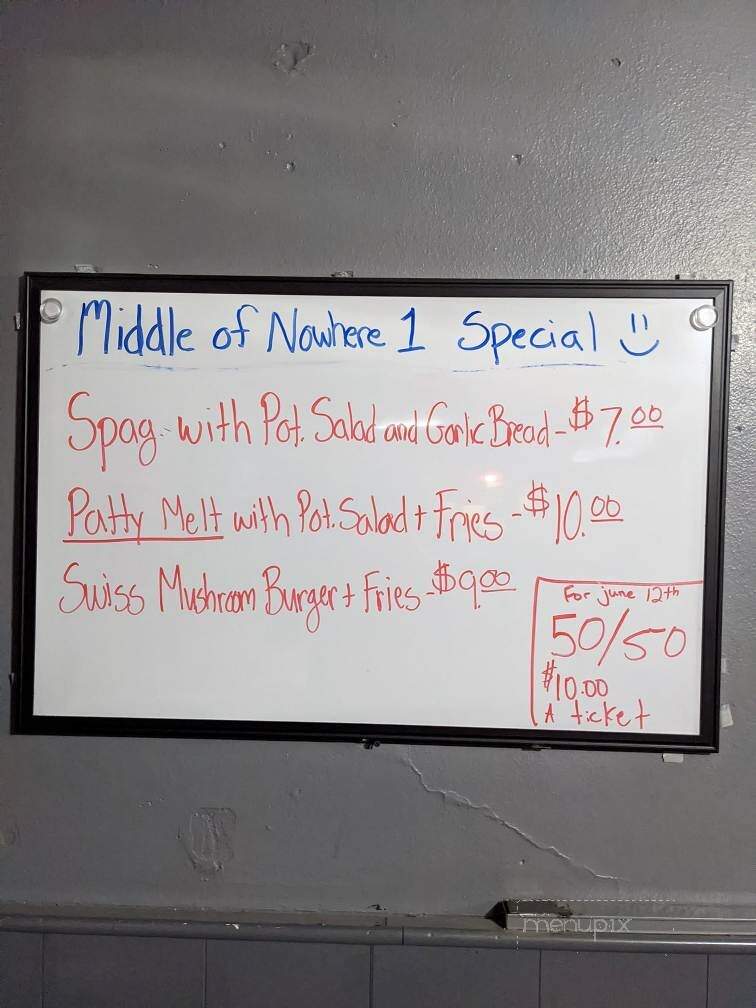 Middle of Nowhere 1 Special
Spag. with Pot. Salad and Garlic Bread - $7.00
Patty Melt with Pot. Salad + Fries - $10.00
Swiss Mushroom Burger + Fries - $9.00
For june 12th
50/50
$10.00
A ticket
menupix